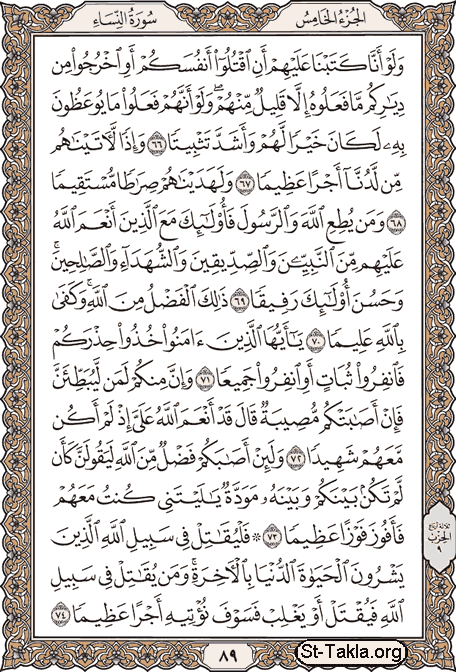 الجزء الخامس
سورة النساء
وَلَوْ أَنَّا كَتَبْنَا عَلَيْهِمْ أَنِ ٱقْتُلُوٓا۟ أَنفُسَكُمْ أَوِ ٱخْرُجُوا۟ مِن
دِيَـٰرِكُم مَّا فَعَلُوهُ إِلَّا قَلِيلٌ مِّنْهُمْ ۖ وَلَوْ أَنَّهُمْ فَعَلُوا۟ مَا يُوعَظُونَ
بِهِۦ لَكَانَ خَيْرًا لَّهُمْ وَأَشَدَّ تَثْبِيتًا ٦٦ وَإِذًا لَّـَٔاتَيْنَـٰهُم
مِّن لَّدُنَّآ أَجْرًا عَظِيمًا ٦٧ وَلَهَدَيْنَـٰهُمْ صِرَٰطًا مُّسْتَقِيمًا
٦٨ وَمَن يُطِعِ ٱللَّهَ وَٱلرَّسُولَ فَأُو۟لَـٰٓئِكَ مَعَ ٱلَّذِينَ أَنْعَمَ ٱللَّهُ
عَلَيْهِم مِّنَ ٱلنَّبِيِّـۧنَ وَٱلصِّدِّيقِينَ وَٱلشُّهَدَآءِ وَٱلصَّـٰلِحِينَ ۚ
وَحَسُنَ أُو۟لَـٰٓئِكَ رَفِيقًا ٦٩ ذَٰلِكَ ٱلْفَضْلُ مِنَ ٱللَّهِ ۚ وَكَفَىٰ
بِٱللَّهِ عَلِيمًا ٧٠ يَـٰٓأَيُّهَا ٱلَّذِينَ ءَامَنُوا۟ خُذُوا۟ حِذْرَكُمْ
فَٱنفِرُوا۟ ثُبَاتٍ أَوِ ٱنفِرُوا۟ جَمِيعًا ٧١ وَإِنَّ مِنكُمْ لَمَن لَّيُبَطِّئَنَّ
فَإِنْ أَصَـٰبَتْكُم مُّصِيبَةٌ قَالَ قَدْ أَنْعَمَ ٱللَّهُ عَلَىَّ إِذْ لَمْ أَكُن
مَّعَهُمْ شَهِيدًا ٧٢ وَلَئِنْ أَصَـٰبَكُمْ فَضْلٌ مِّنَ ٱللَّهِ لَيَقُولَنَّ كَأَن
لَّمْ تَكُنۢ بَيْنَكُمْ وَبَيْنَهُۥ مَوَدَّةٌ يَـٰلَيْتَنِى كُنتُ مَعَهُمْ
فَأَفُوزَ فَوْزًا عَظِيمًا ٧٣ ۞ فَلْيُقَـٰتِلْ فِى سَبِيلِ ٱللَّهِ ٱلَّذِينَ
يَشْرُونَ ٱلْحَيَوٰةَ ٱلدُّنْيَا بِٱلْـَٔاخِرَةِ ۚ وَمَن يُقَـٰتِلْ فِى سَبِيلِ
ٱللَّهِ فَيُقْتَلْ أَوْ يَغْلِبْ فَسَوْفَ نُؤْتِيهِ أَجْرًا عَظِيمًا ٧٤
ثلاثة أرباع
الحزب
٩
٨٩
St-Takla.org